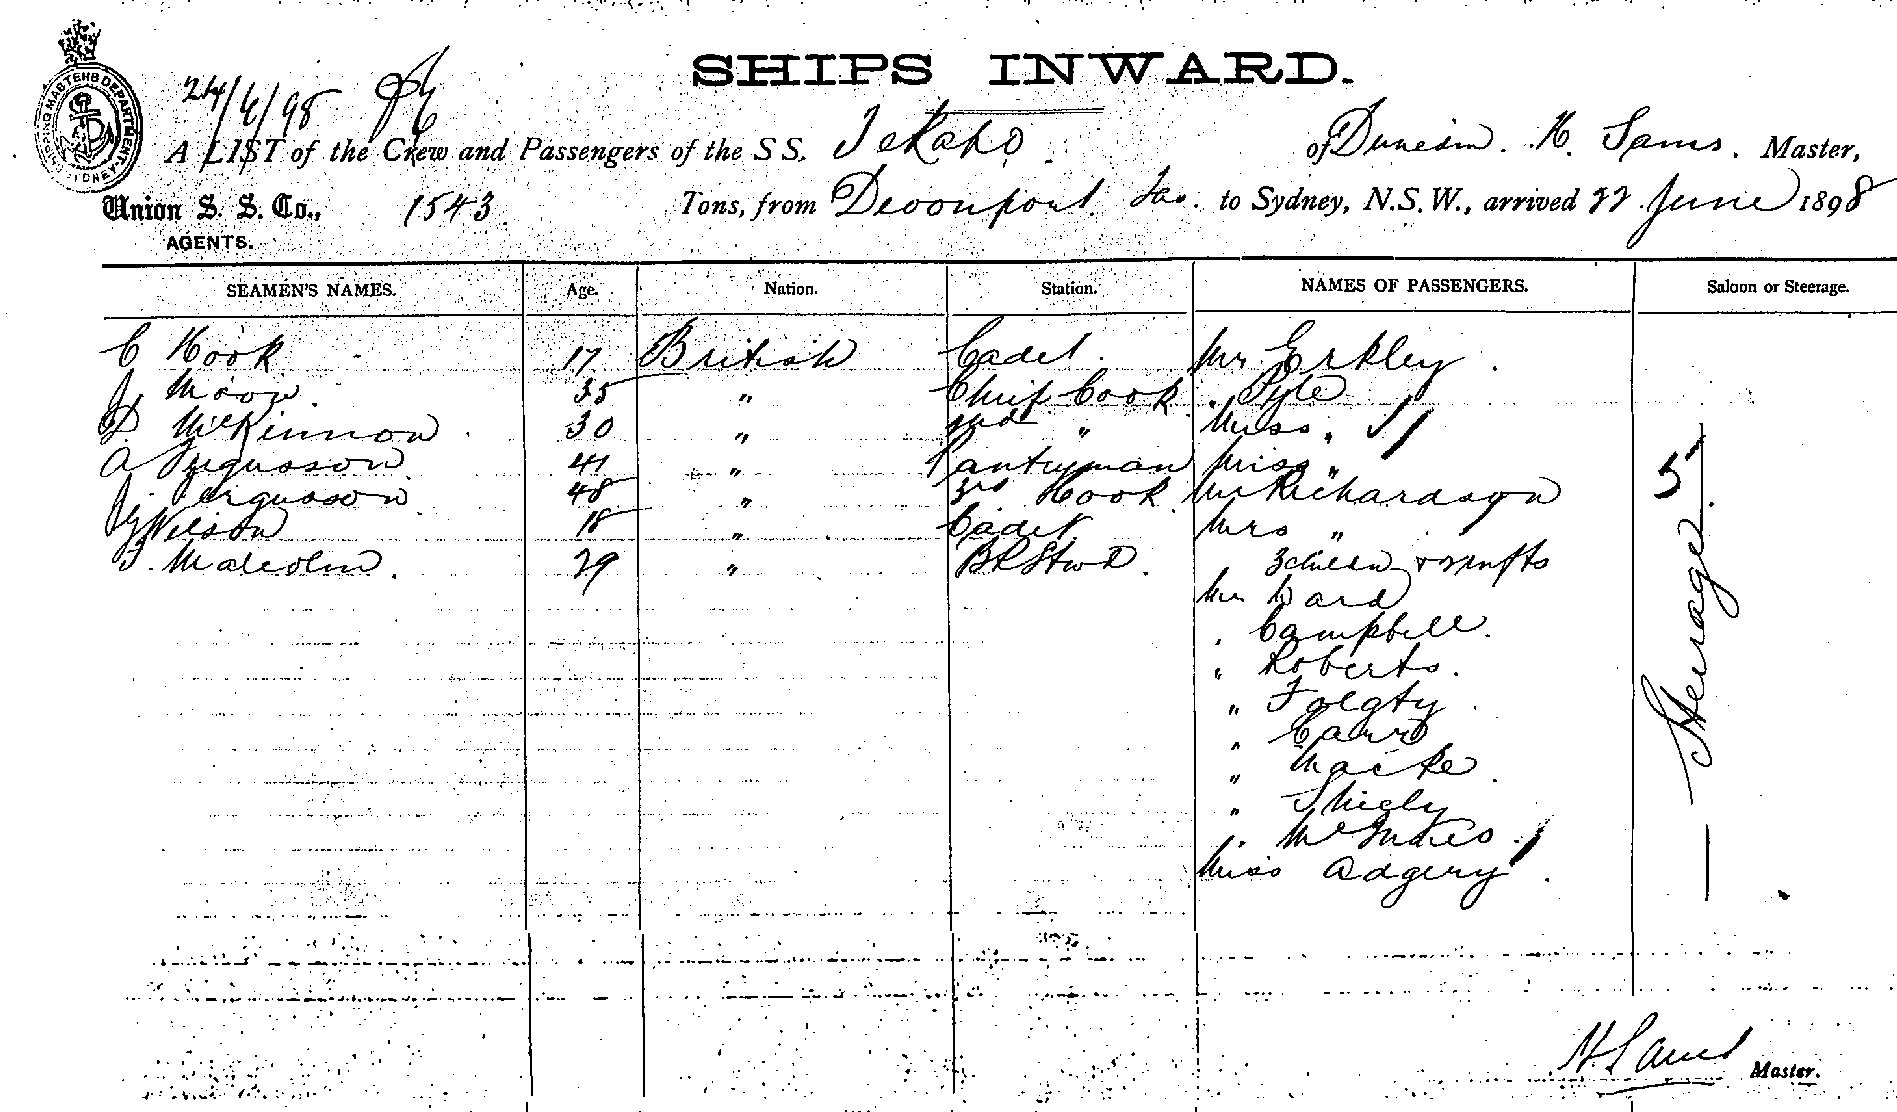 SHIPS INWARD.
24/6/98
A LIST of the Crew and Passengers of the SS. Tekapo of Dunedin. H. Sams. Master,
Union S. S. Co., 1543 Tons, from Devonport Tas. to Sydney, N.S.W., arrived 22 June 1898
AGENTS.
SEAMEN'S NAMES. Age. Nation. Station. NAMES OF PASSENGERS. Saloon or Steerage.
C Hook 17 British Cadet. Mr Erkley
J Moon 35 " Chief Cook " Pyle
D McKinnon 30 " 2nd " Miss "
A Fergusson 41 " Pantryman Miss "
J Fergusson 48 " 3rd Cook Mr Richardson
Wilson 18 " Cadet Mrs "
F. Malcolm 29 " BR Stwd.
Mr Ward
" Campbell.
" Roberts.
"
" Carr
" Macke
"
" McInnes
Miss Adgery
5
Steerage
H Sams Master.